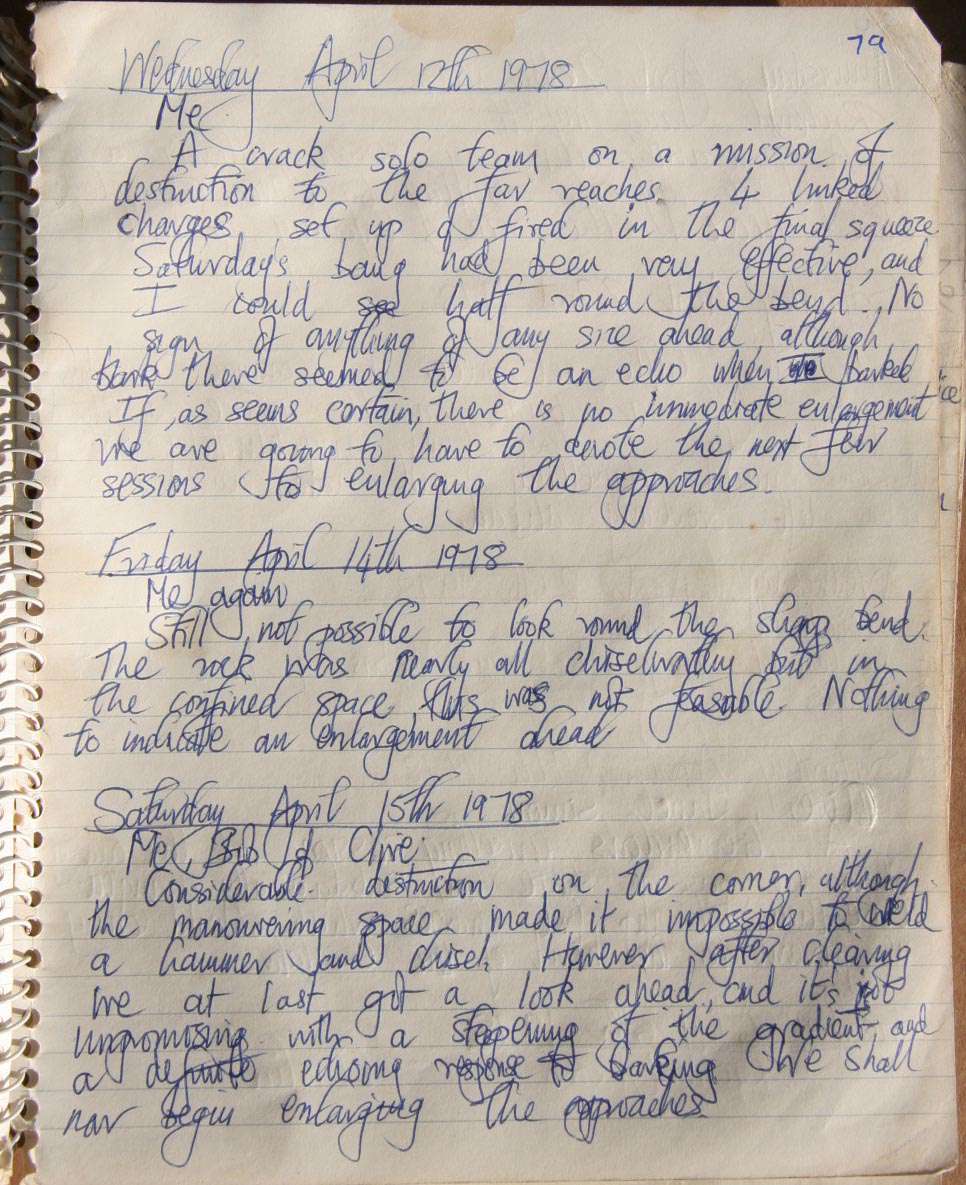 79
Wednesday April 12th 1978
Me
A crack solo team on a mission of
destruction to the far reaches. 4 linked
charges set up & fired in the final squeeze.
Saturday's bang had been very effective, and
I could see half round the bend. No
sign of anything of any size ahead, although
there seemed to be an echo when barked
If, as seems certain, there is no immediate enlargement
we are going to have to devote the next few
sessions to enlarging the approaches.
Friday April 14th 1978
Me again
Still not possible to look round the sharp bend.
The rock was nearly all chiselworthy but in
the confined space this was not feasable. Nothing
to indicate an enlargement ahead
Saturday April 15th 1978
Me, Bob & Clive
Considerable destruction on the corner, although
the manouvering space made it impossible to wield
a hammer and chisel. However after clearing
we at last got a look ahead, and it's not
unpromising with a steepening of the gradient and
a definite echoing response to barking. We shall
now begin enlarging the approaches